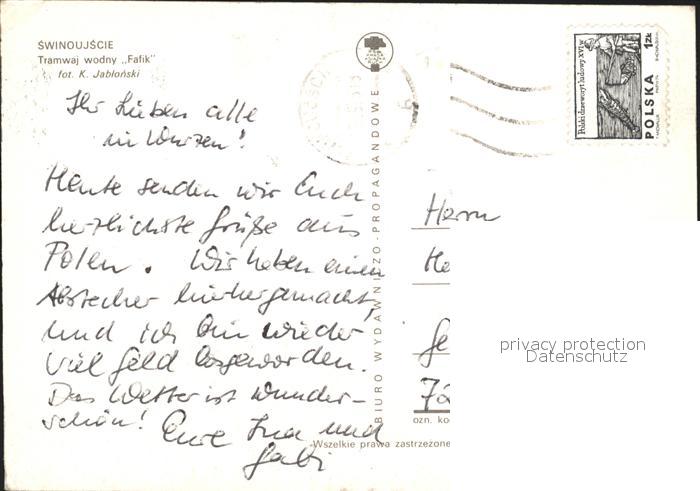 ŚWINOUJŚCIE
Tramwaj wodny „Fafik"
fot. K. Jabłoński
Ihr Lieben alle
in Wurzen!
Heute senden wir Euch
herzlichste Grüße aus
Polen. Wir haben einen
Abstecher hierhergemacht,
und ich bin wieder
viel Geld losgeworden.
Das Wetter ist wunder-
schön!
Eure Ina und
Gabi
BIURO WYDAWNICZO-PROPAGANDOWE
Polski drzeworyt ludowy XVI w
POLSKA 1zł
Herrn
He
Ge
72
ozn. ko
Wszelkie prawa zastrzeżone
privacy protection
Datenschutz